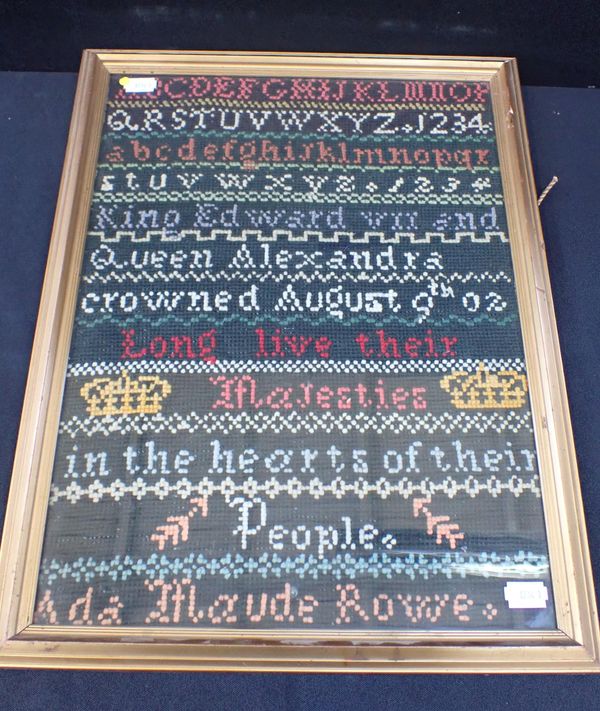 ABCDEFGHIJKLMNOP
QRSTUVWXYZ.1234
abcdefghijklmnopqr
stuvwxyz.1234
King Edward VII and
Queen Alexandra
crowned August 9th 02
Long live their
Majesties
in the hearts of their
People.
Ada Maude Rowe.